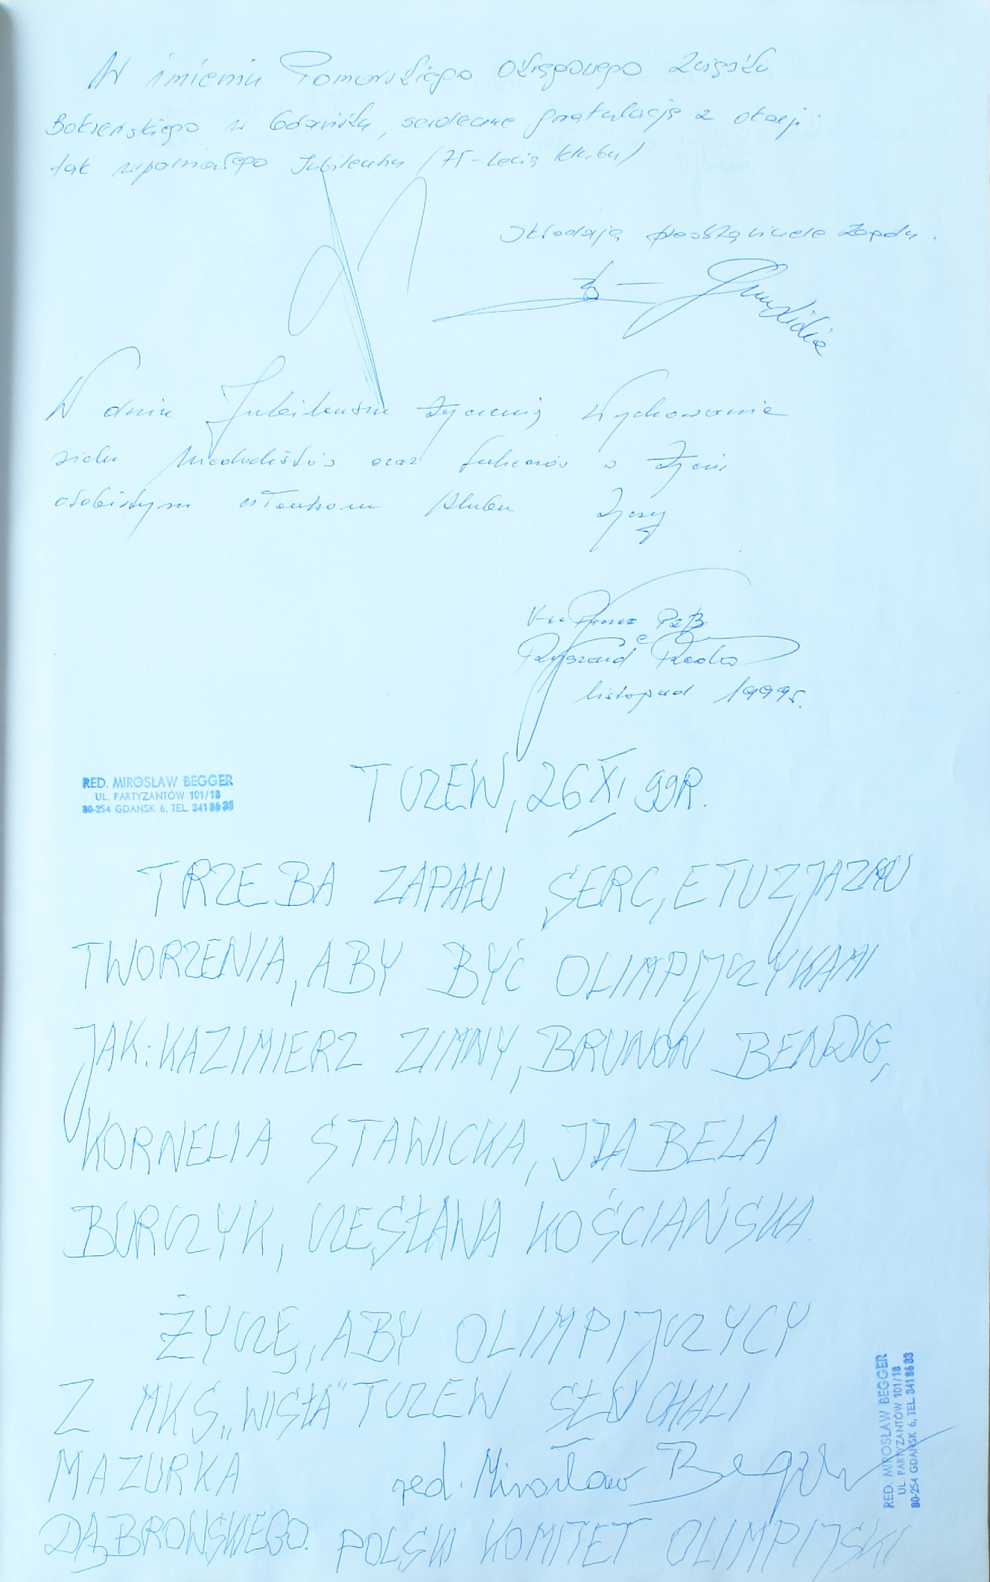 W imieniu Pomorskiego Okręgowego Związku
Bokserskiego w Gdańsku, serdeczne gratulacje z okazji
tak wspaniałego Jubileuszu (75-lecia klubu)
składają przedstawiciele Zarządu.
W dniu Jubileuszu życzenia Wychowania
wielu Medalistów oraz sukcesów w życiu
osobistym członkom klubu życzy
PZB
Ryszard
listopad 1999r.
RED. MIROSŁAW BEGGER
UL. PARTYZANTÓW 101/18
80-254 GDAŃSK 6, TEL. 341 86 83
TCZEW, 26 XI 99R.
TRZEBA ZAPAŁU SERC, ETUZJAZMU
TWORZENIA, ABY BYĆ OLIMPIJCZYKAMI
JAK: KAZIMIERZ ZIMNY, BRUNON BENDIG,
KORNELIA STAWICKA, IZABELA
BURCZYK, CZESŁAWA KOŚCIAŃSKA.
ŻYCZĘ, ABY OLIMPIJCZYCY
Z MKS „WISŁA" TCZEW SŁUCHALI
MAZURKA red. Mirosław Begger
DĄBROWSKIEGO. POLSKI KOMITET OLIMPIJSKI
RED. MIROSŁAW BEGGER
UL. PARTYZANTÓW 101/18
80-254 GDAŃSK 6, TEL. 341 86 83